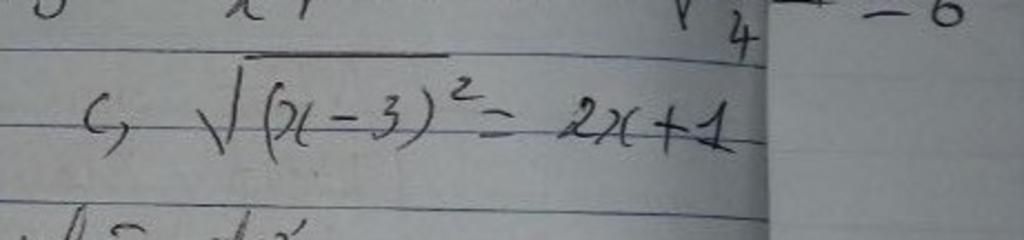 4 - 6
c, √(x-3)² = 2x+1